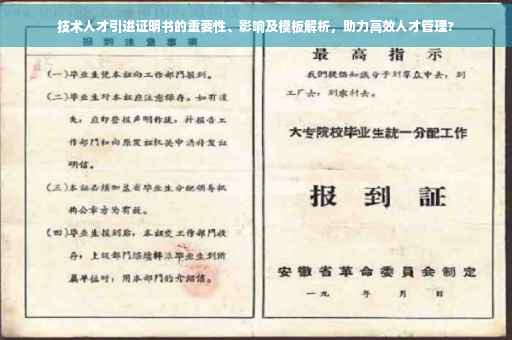 技术人才引进证明书的重要性、影响及模板解析，助力高效人才管理?
报到注意事项
(一)毕业生凭本证向工作部门报到。
(二)毕业生对本证应注意保存。如有遗
失，应即登报声明作废，并报告工
作部门和向原发证机关申请补发证
明信。
(三)本证必须加盖省毕业生分配领导机
构公章方为有效。
(四)毕业生报到后，本证交工作部门收
存；上级部门继续转派毕业生到所
属单位时，用本部门的介绍信。
最高指示
我们提倡知识分子到群众中去，到
工厂去，到农村去。
大专院校毕业生统一分配工作
报到证
安徽省革命委员会制定
一九 年 月 日